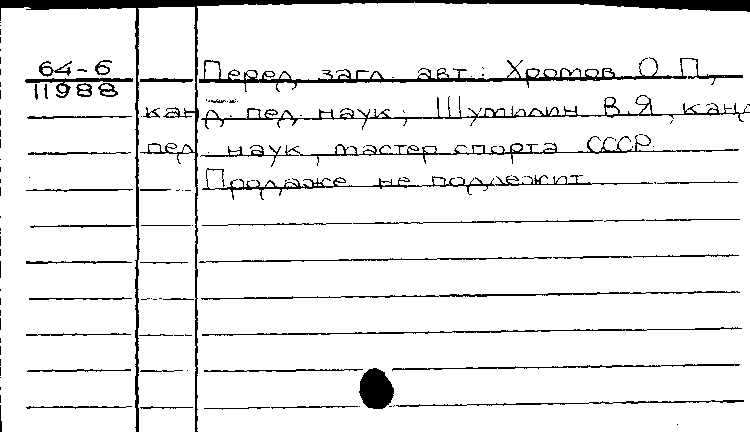 64-6
11988
Перед загл. авт.: Хромов О П,
канд. пед. наук; Шумилин В.Я, канд
пед наук, мастер спорта СССР
Продаже не подлежит